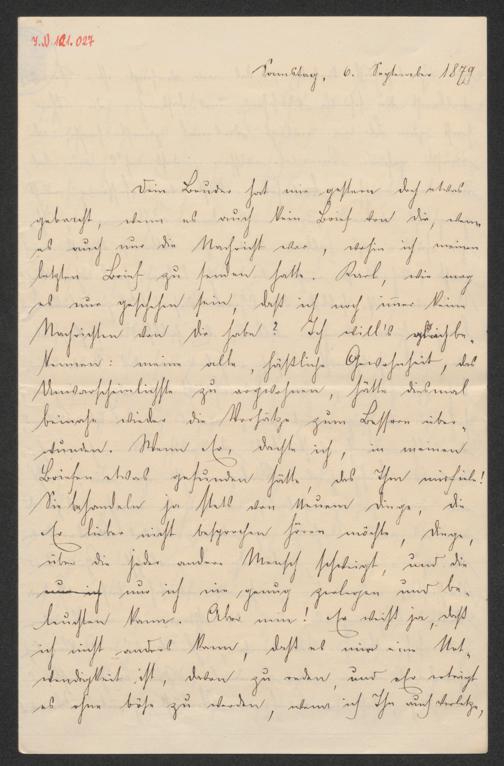 I.N 121.027
Samstag, 6. September 1879
Dein Bruder hat mir gestern doch etwas
gebracht, wenn es auch kein Brief von dir, wenn
es auch nur die Nachricht war, wohin ich meinen
letzten Brief zu senden hatte. Karl, wie mag
es nur geschehen sein, daß ich noch immer keine
Nachrichten von dir habe? Ich will's gleich be-
kennen: meine alte, häßliche Gewohnheit, das
Unwarscheinlichste zu argwohnen, hätte diesmal
beinahe wieder die Vorsätze zum Bessern über-
wunden. Wenn Er, dachte ich, in meinen
Briefen etwas gefunden hätte, das Ihm misfiele!
Sie behandeln ja stets von Neuem Dinge, die
Er lieber nicht besprochen hören möchte, Dinge,
über die jeder andere Mensch schweigt, und die
nur ich nur ich nie genug zerlegen und be-
leuchten kann. Aber nein! Er weiß ja, daß
ich nicht anders kann, daß es mir eine Not-
wendigkeit ist, davon zu reden, und Er erträgt
es ohne böse zu werden, wenn ich Ihn auch verletze,